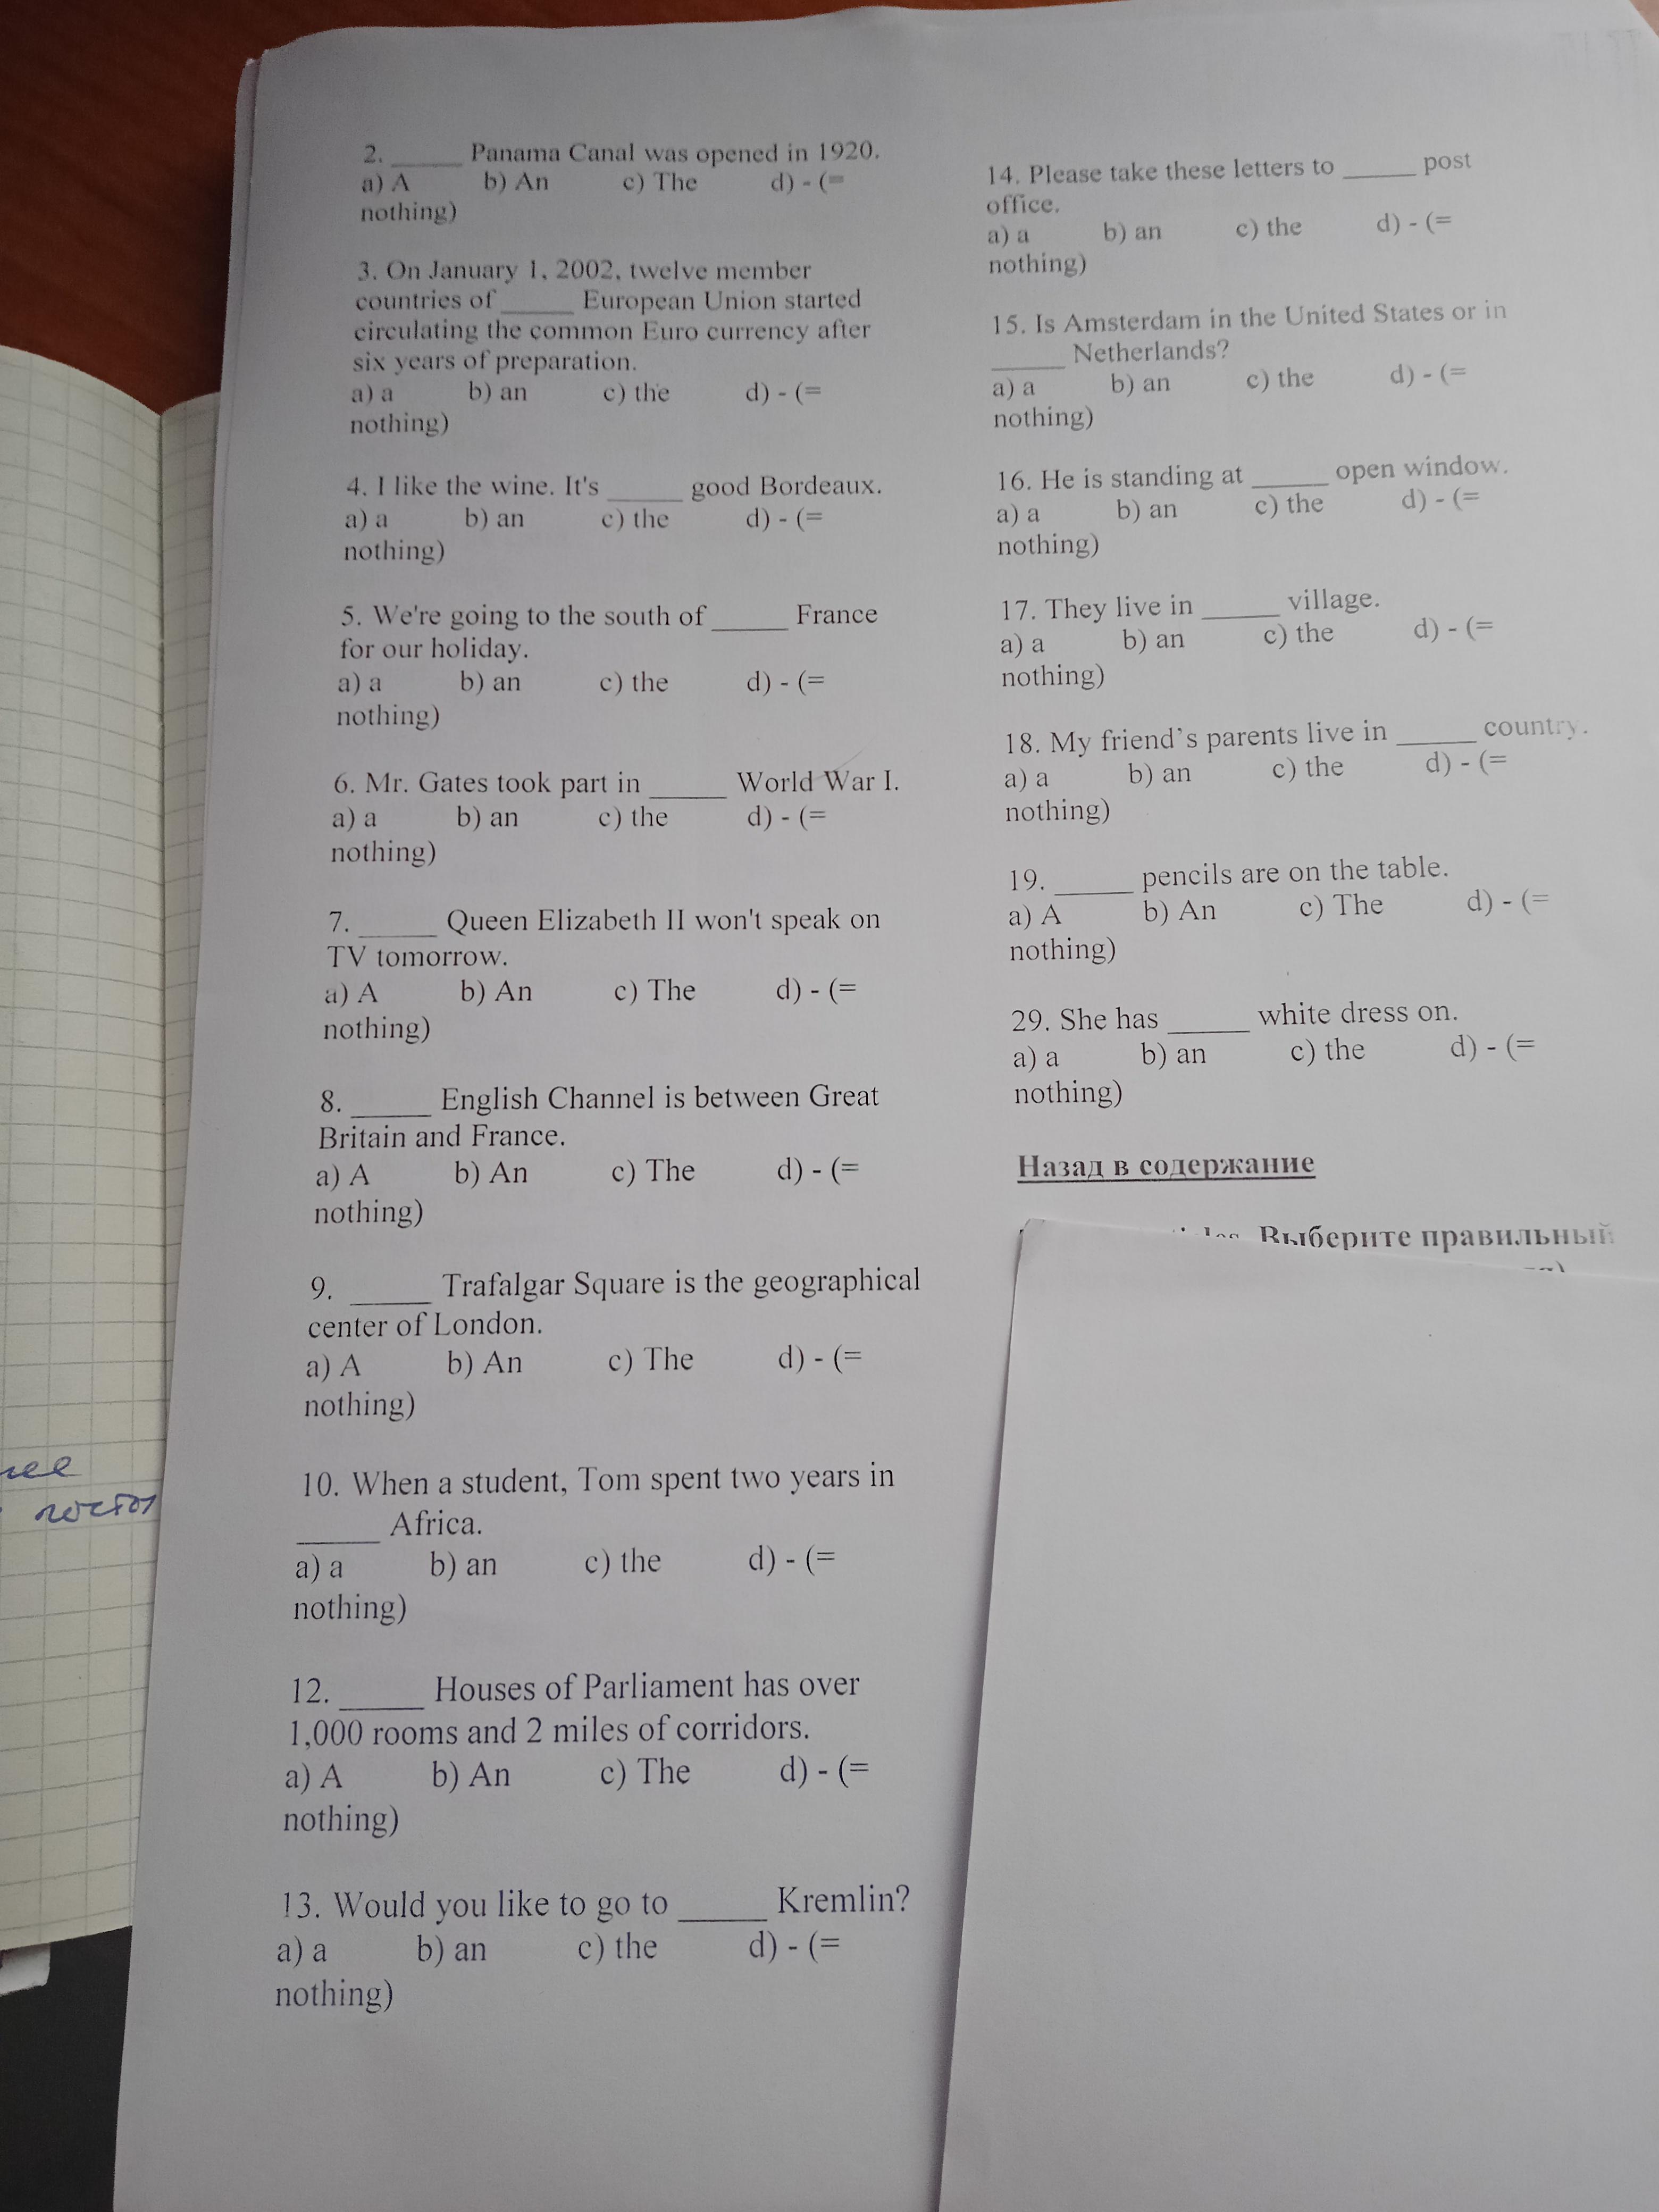 2. _____ Panama Canal was opened in 1920.
a) A b) An c) The d) - (=
nothing)
3. On January 1, 2002, twelve member
countries of _____ European Union started
circulating the common Euro currency after
six years of preparation.
a) a b) an c) the d) - (=
nothing)
4. I like the wine. It's _____ good Bordeaux.
a) a b) an c) the d) - (=
nothing)
5. We're going to the south of _____ France
for our holiday.
a) a b) an c) the d) - (=
nothing)
6. Mr. Gates took part in _____ World War I.
a) a b) an c) the d) - (=
nothing)
7. _____ Queen Elizabeth II won't speak on
TV tomorrow.
a) A b) An c) The d) - (=
nothing)
8. _____ English Channel is between Great
Britain and France.
a) A b) An c) The d) - (=
nothing)
9. _____ Trafalgar Square is the geographical
center of London.
a) A b) An c) The d) - (=
nothing)
10. When a student, Tom spent two years in
_____ Africa.
a) a b) an c) the d) - (=
nothing)
12. _____ Houses of Parliament has over
1,000 rooms and 2 miles of corridors.
a) A b) An c) The d) - (=
nothing)
13. Would you like to go to _____ Kremlin?
a) a b) an c) the d) - (=
nothing)
14. Please take these letters to _____ post
office.
a) a b) an c) the d) - (=
nothing)
15. Is Amsterdam in the United States or in
_____ Netherlands?
a) a b) an c) the d) - (=
nothing)
16. He is standing at _____ open window.
a) a b) an c) the d) - (=
nothing)
17. They live in _____ village.
a) a b) an c) the d) - (=
nothing)
18. My friend’s parents live in _____ country.
a) a b) an c) the d) - (=
nothing)
19. _____ pencils are on the table.
a) A b) An c) The d) - (=
nothing)
29. She has _____ white dress on.
a) a b) an c) the d) - (=
nothing)
Назад в содержание
Выберите правильный